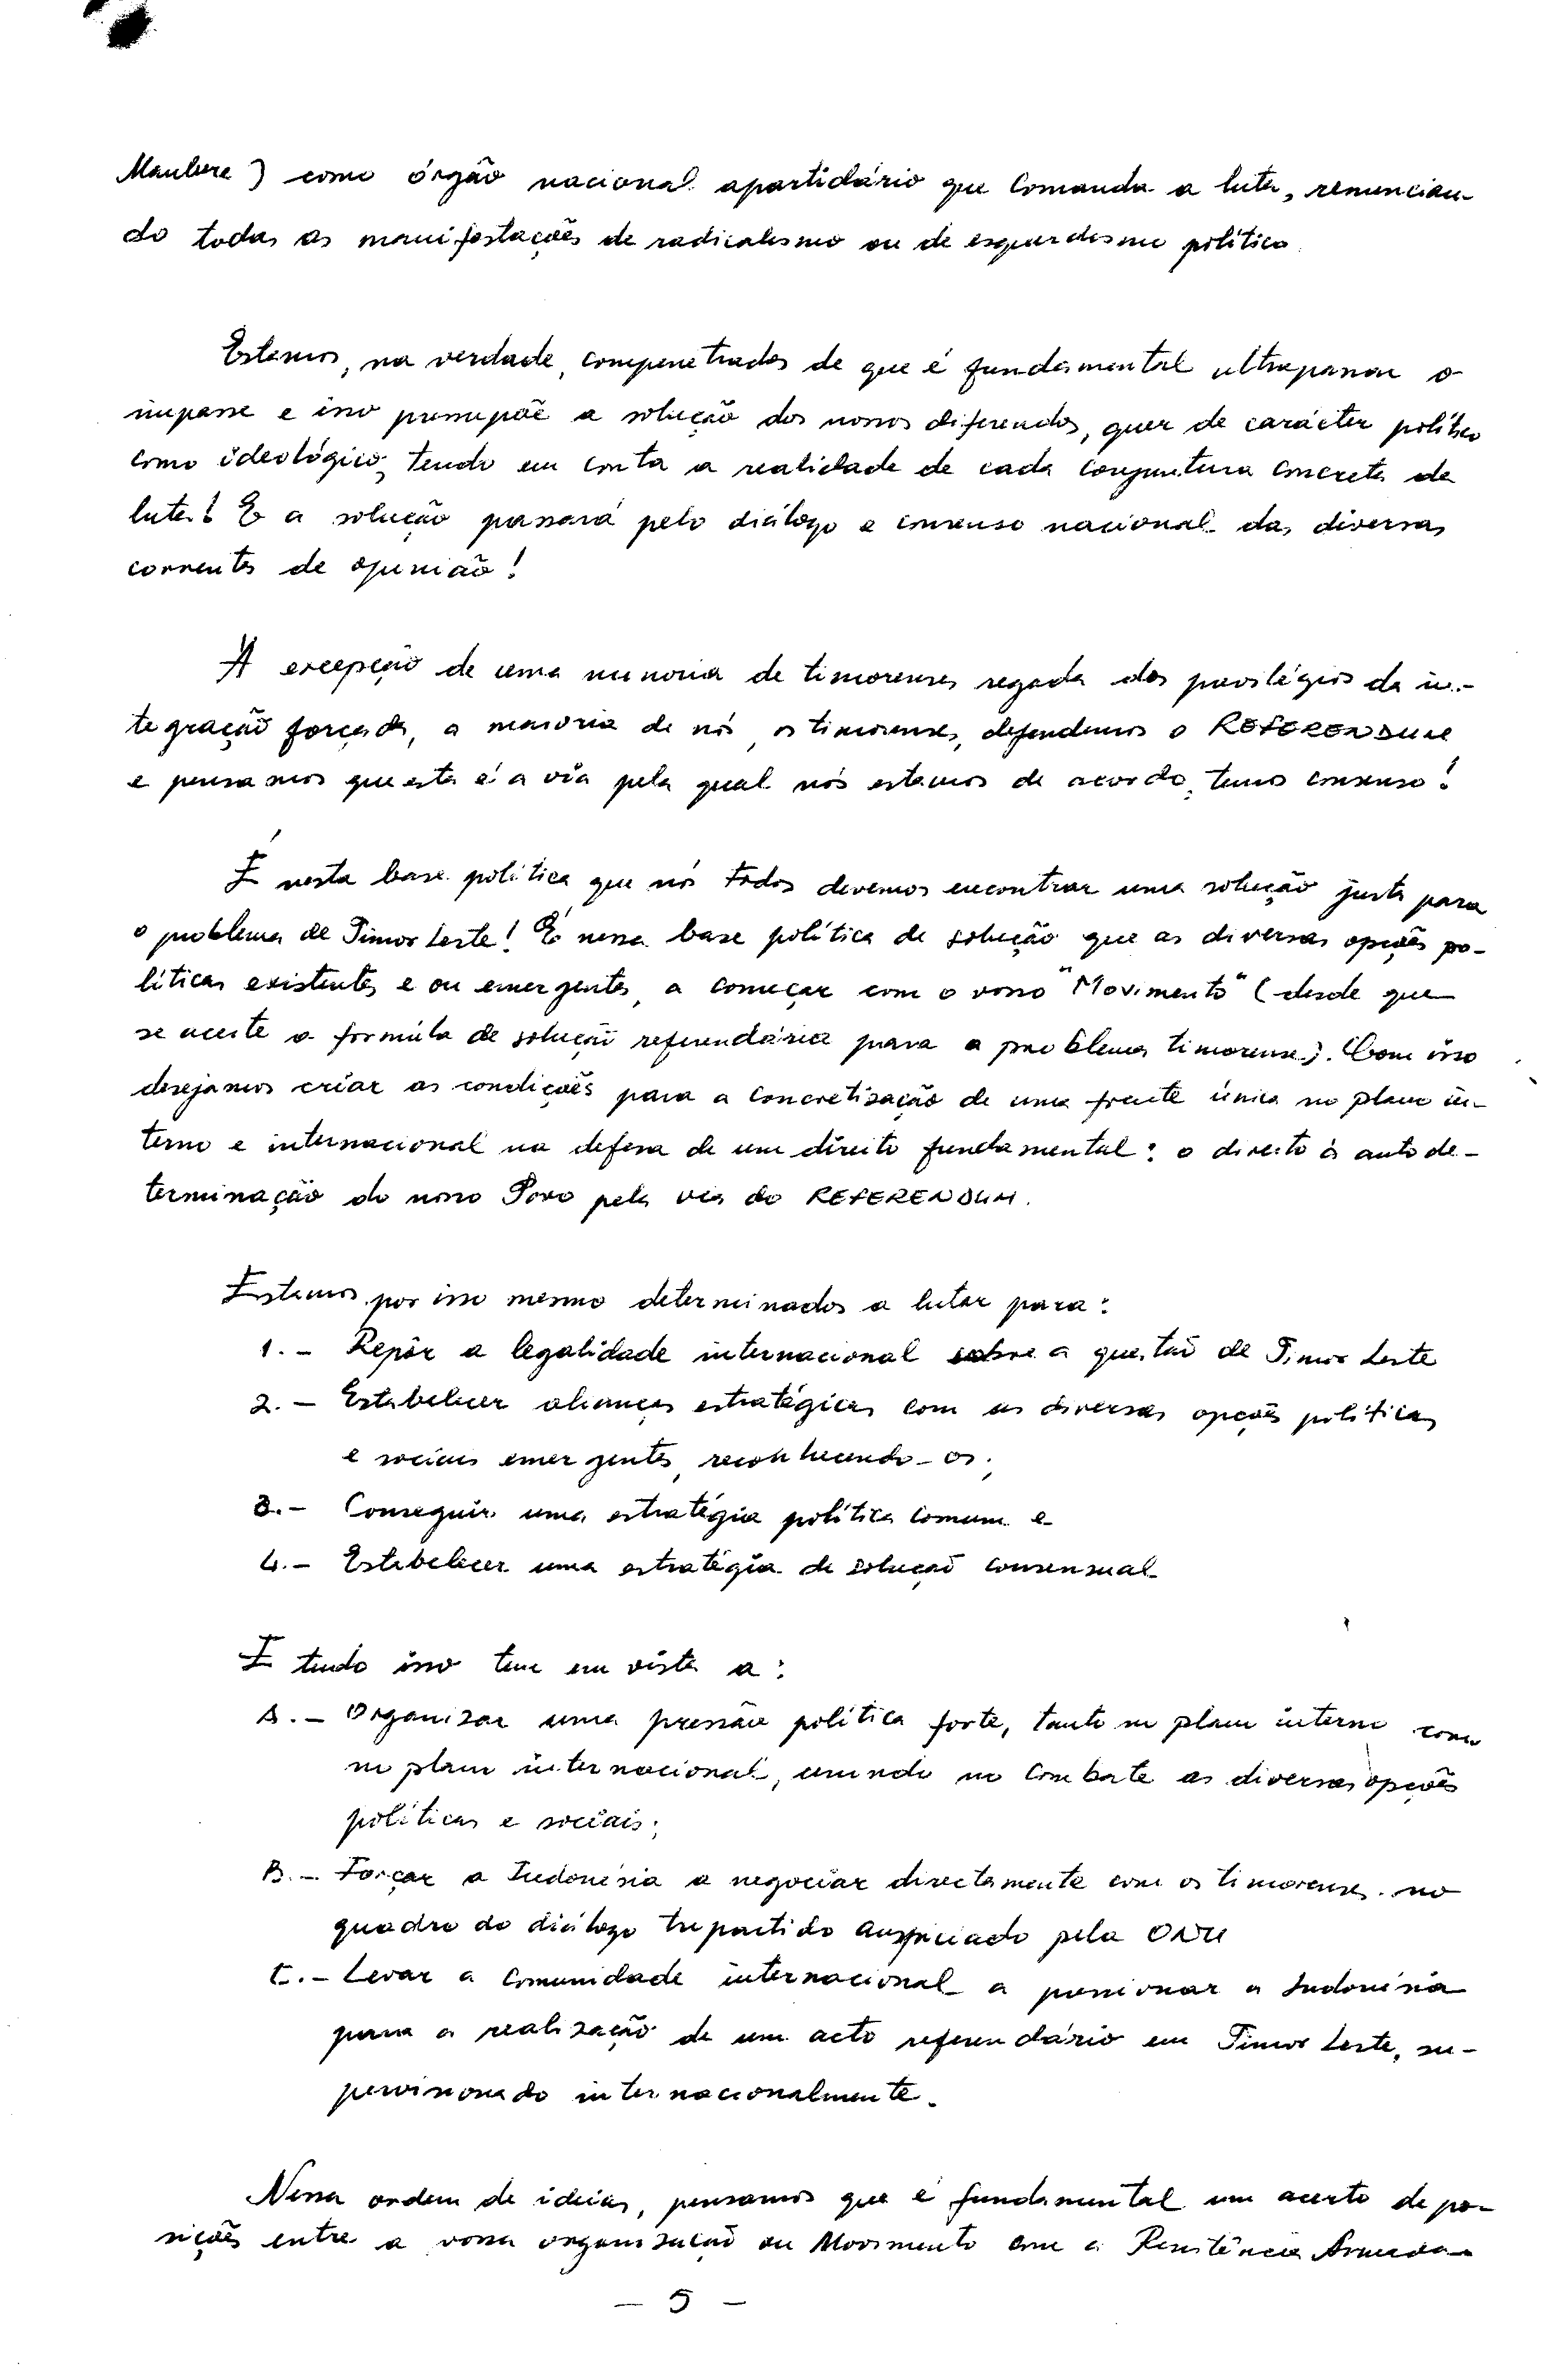 Maubere) como órgão nacional apartidário que comanda a luta, renuncian-
do todas as manifestações de radicalismo ou de esquerdismo político.
Estamos, na verdade, compenetrados de que é fundamental ultrapassar o
impasse e isso pressupõe a solução dos nossos diferendos, quer de carácter político
como ideológico, tendo em conta a realidade de cada conjuntura concreta da
luta! E a solução passará pelo diálogo e consenso nacional das diversas
correntes de opinião!
À excepção de uma minoria de timorenses regada dos privilégios da in-
tegração forçada, a maioria de nós, os timorenses, defendemos o REFERENDUM
e pensamos que esta é a via pela qual nós estamos de acordo, temos consenso!
É nesta base política que nós todos devemos encontrar uma solução justa para
o problema de Timor Leste! É nessa base política de solução que as diversas opções po-
líticas existentes e ou emergentes, a começar com o vosso "Movimento" (desde que
se aceite a formúla de solução referendária para o problema timorense). Com isso
desejamos criar as condições para a concretização de uma frente única no plano in-
terno e internacional na defesa de um direito fundamental: o direito à autode-
terminação do nosso Povo pela via do REFERENDUM.
Estamos por isso mesmo determinados a lutar para:
1.- Repôr a legalidade internacional sobre a questão de Timor Leste
2.- Estabelecer alianças estratégicas com as diversas opções políticas
e sociais emergentes, reconhecendo-os;
3.- Conseguir uma estratégia política comum e
4.- Estabelecer uma estratégia de solução consensual
E tudo isso tem em vista a:
A.- Organizar uma pressão política forte, tanto no plano interno como
no plano internacional, unindo no combate as diversas opções
políticas e sociais;
B.- Forçar a Indonésia a negociar directamente com os timorenses no
quadro do diálogo tripartido auspiciado pela ONU
C.- Levar a comunidade internacional a pressionar a Indonésia
para a realização de um acto referendário em Timor Leste, su-
pervisionado internacionalmente.
Nessa ordem de ideias, pensamos que é fundamental um acerto de po-
sições entre a vossa organização ou Movimento com a Resistência Armada
- 5 -